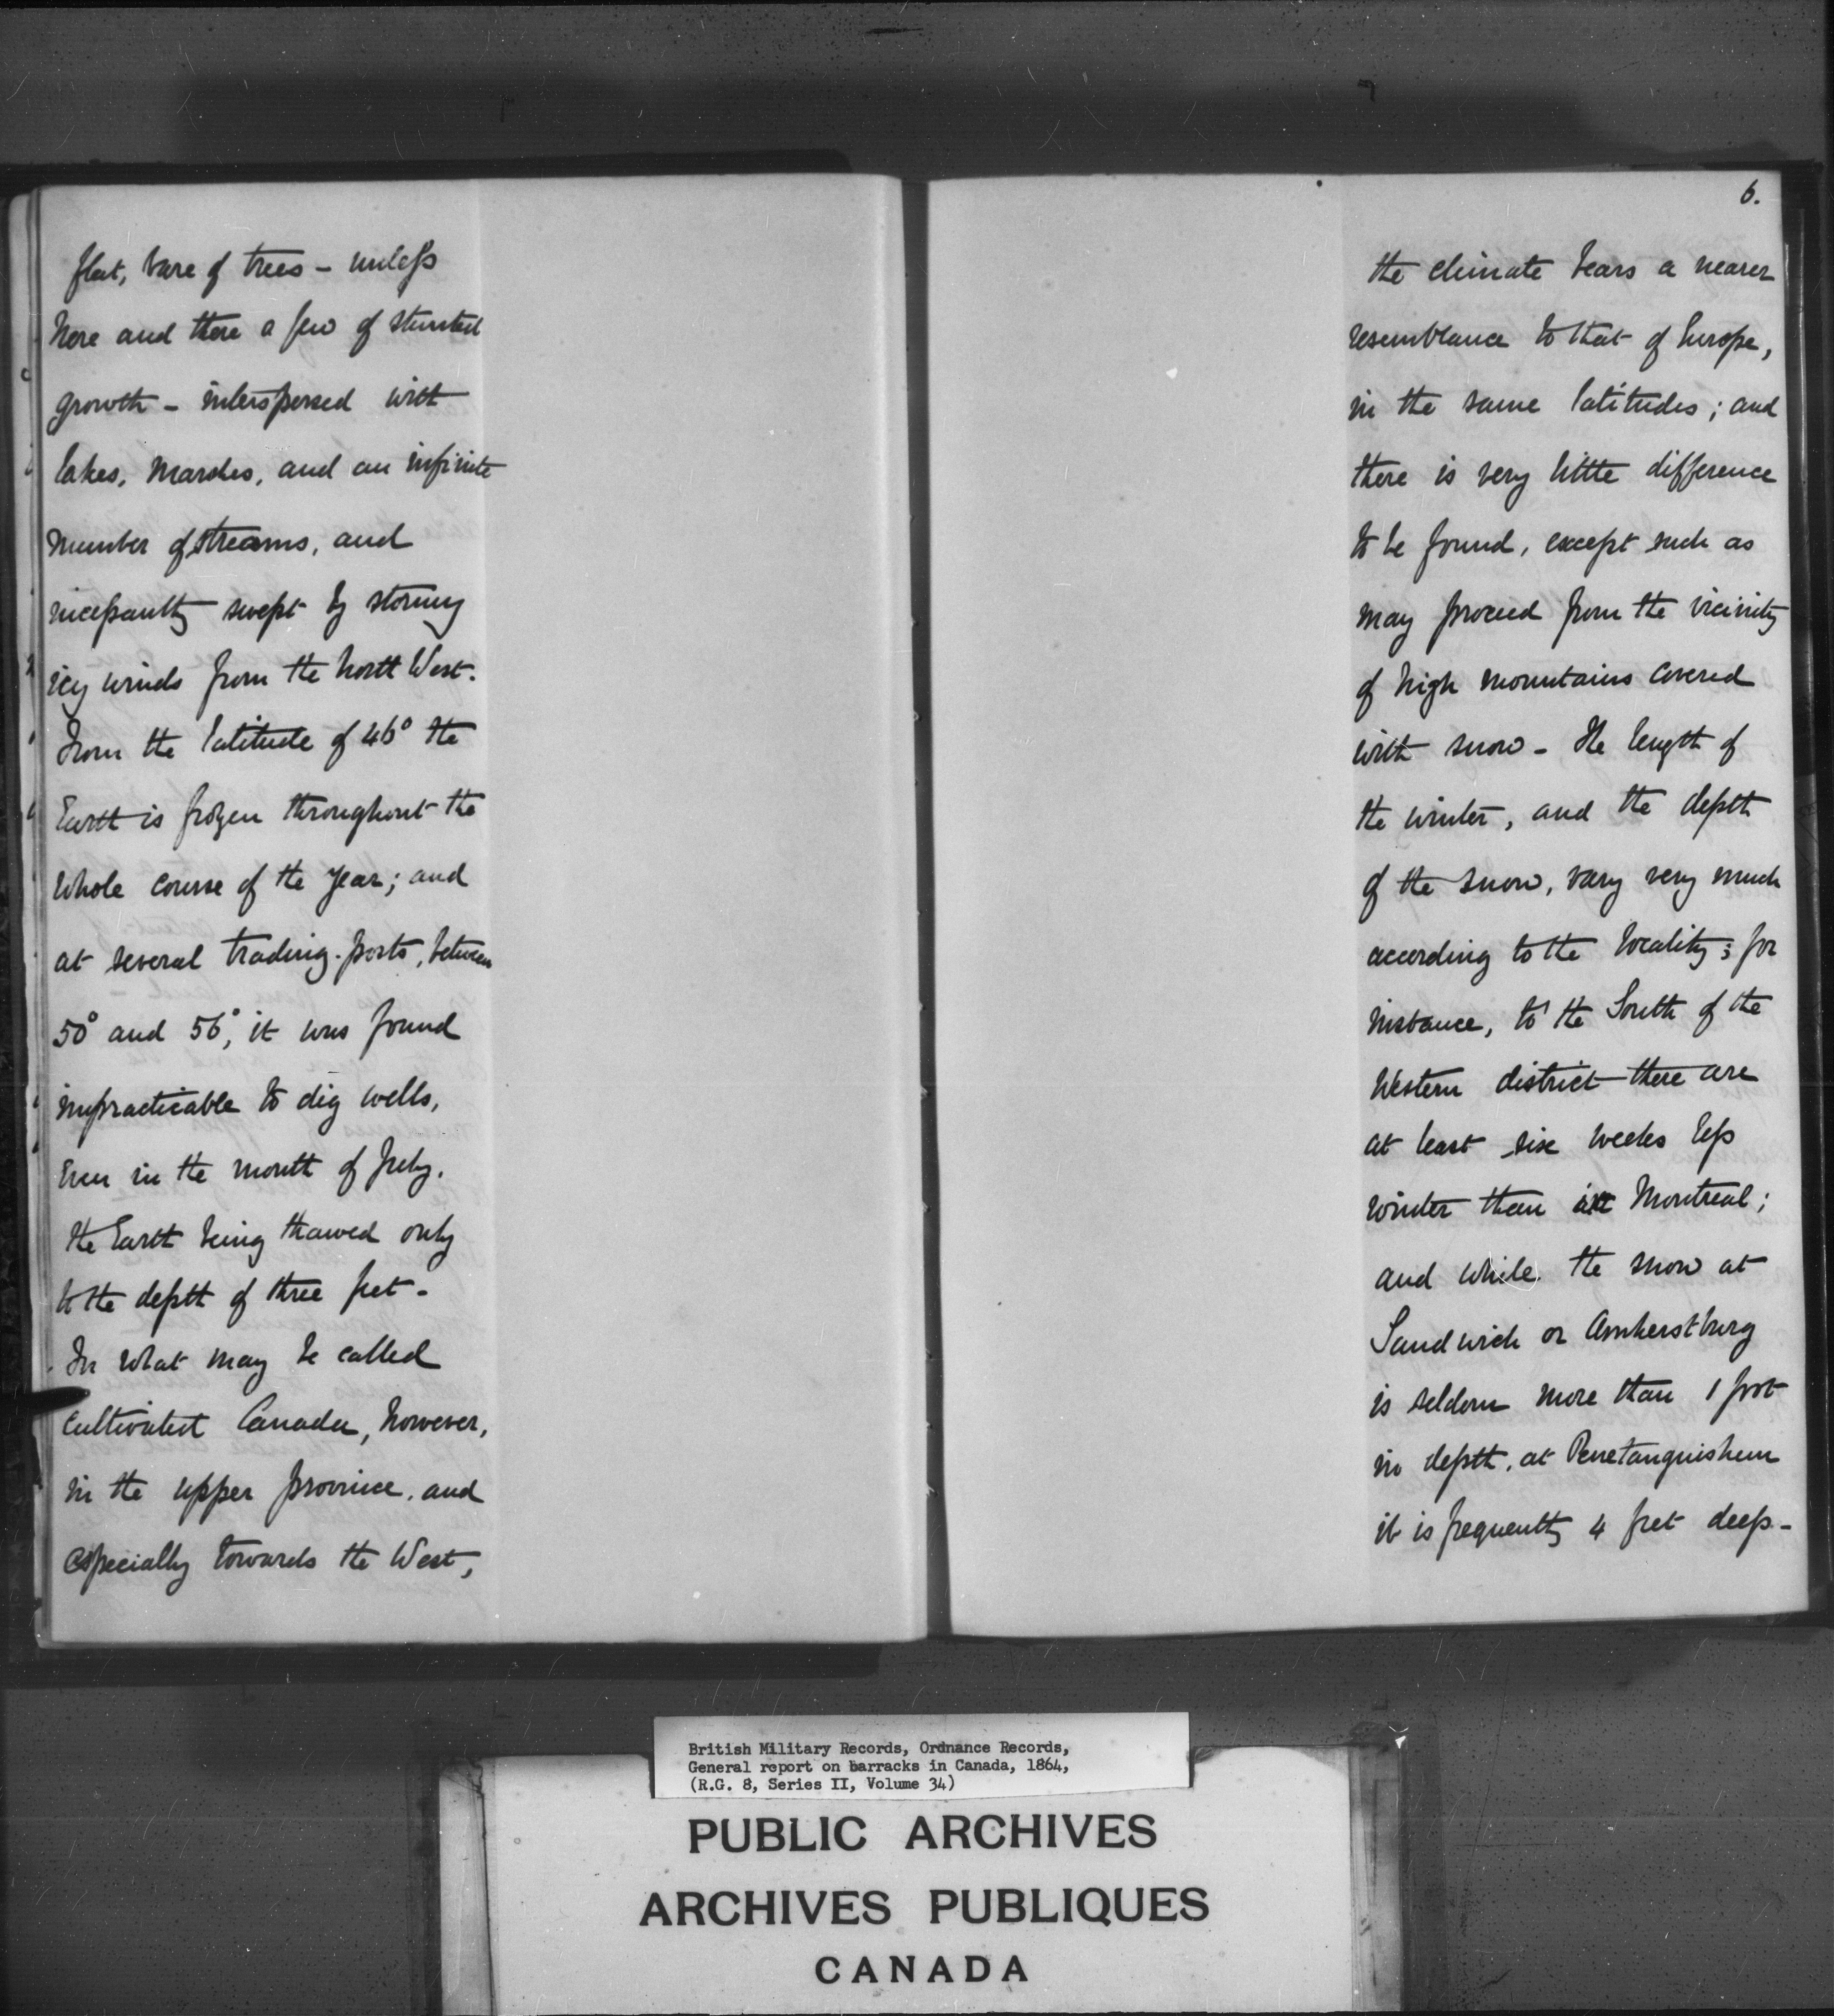 flat, bare of trees - unless
here and there a few of stunted
growth - interspersed with
lakes, marshes, and an infinite
number of streams, and
incessantly swept by stormy
icy winds from the North West.
From the latitude of 46° the
Earth is frozen throughout the
whole course of the year; and
at several trading-posts, between
50° and 56°, it was found
impracticable to dig wells,
even in the month of July.
the Earth being thawed only
to the depth of three feet -
In what may be called
cultivated Canada, however,
in the upper province, and
especially towards the West,
6.
the climate bears a nearer
resemblance to that of Europe,
in the same latitudes; and
there is very little difference
to be found, except such as
may proceed from the vicinity
of high mountains covered
with snow - The length of
the winter, and the depth
of the snow, vary very much
according to the locality; for
instance, to the South of the
Western district there are
at least six weeks less
winter than at Montreal;
and while the snow at
Sandwich or Amherstburg
is seldom more than 1 foot
in depth, at Penetanguishene
it is frequently 4 feet deep -
British Military Records, Ordnance Records,
General report on barracks in Canada, 1864,
(R.G. 8, Series II, Volume 34)
PUBLIC ARCHIVES
ARCHIVES PUBLIQUES
CANADA